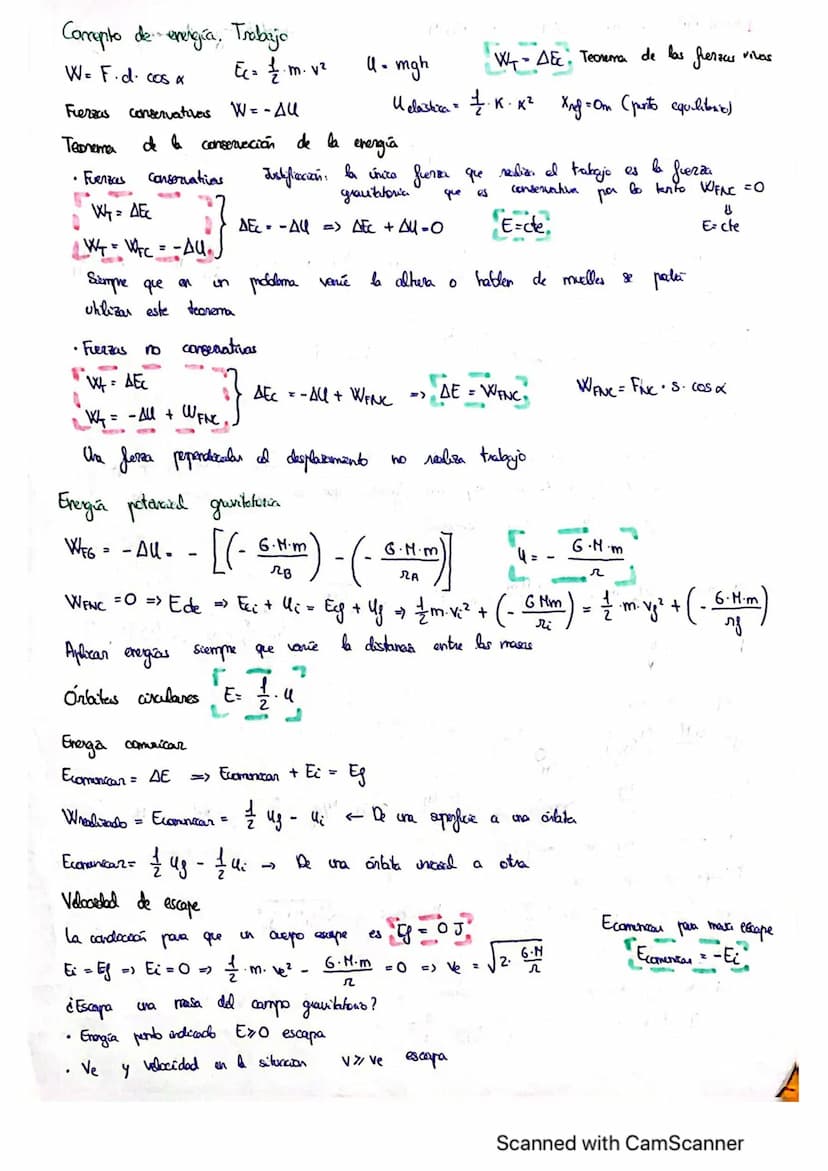 Concepto de energía, Trabajo
W = F · d · cos α    Ec = 1/2 · m · v²    U = mgh    WT = ΔEc, Teorema de las fuerzas vivas
Fuerzas conservativas W = -ΔU    U elástica = 1/2 · K · x²    Xref = 0m (punto equilibrio)
Teorema de la conservación de la energía
· Fuerzas conservativas    Justificación: la única fuerza que realiza el trabajo es la fuerza
gravitatoria que es conservativa por lo tanto WFNC = 0
WT = ΔEc
WT = WFC = -ΔU } ΔEc = -ΔU => ΔEc + ΔU = 0    E = cte    ⇓ E = cte
Siempre que en un problema varíe la altura o hablen de muelles se podrá
utilizar este teorema
· Fuerzas no conservativas
WT = ΔEc
WT = -ΔU + WFNC } ΔEc = -ΔU + WFNC => ΔE = WFNC    WFNC = FNC · s · cos α
Una fuerza perpendicular al desplazamiento no realiza trabajo
Energía potencial gravitatoria
WFG = -ΔU = - [(- G·M·m / rB) - (- G·M·m / rA)]    U = - G·M·m / r
WFNC = 0 => Ecte => Eci + Ui = Ecf + Uf => 1/2 m·vi² + (- GMm / ri) = 1/2 · m · vf² + (- G·M·m / rf)
Aplicar energías siempre que varíe la distancia entre las masas
Órbitas circulares E = 1/2 · U
Energía comunicar
Ecomunicar = ΔE => Ecomunicar + Ei = Ef
Wrealizado = Ecomunicar = 1/2 Uf - Ui ← De una superficie a una órbita
Ecomunicar = 1/2 Uf - 1/2 Ui → De una órbita inicial a otra
Velocidad de escape
La condición para que un cuerpo escape es Ef = 0 J    Ecomunicar para masa escape
Ei = Ef => Ei = 0 => 1/2 · m · ve² - G·M·m / r = 0 => ve = √(2 · G·M / r)    Ecomunicar = -Ei
¿Escapa una masa del campo gravitatorio?
· Energía punto indicado E ≥ 0 escapa
· Ve y velocidad en la situación v ≥ ve escapa
Scanned with CamScanner